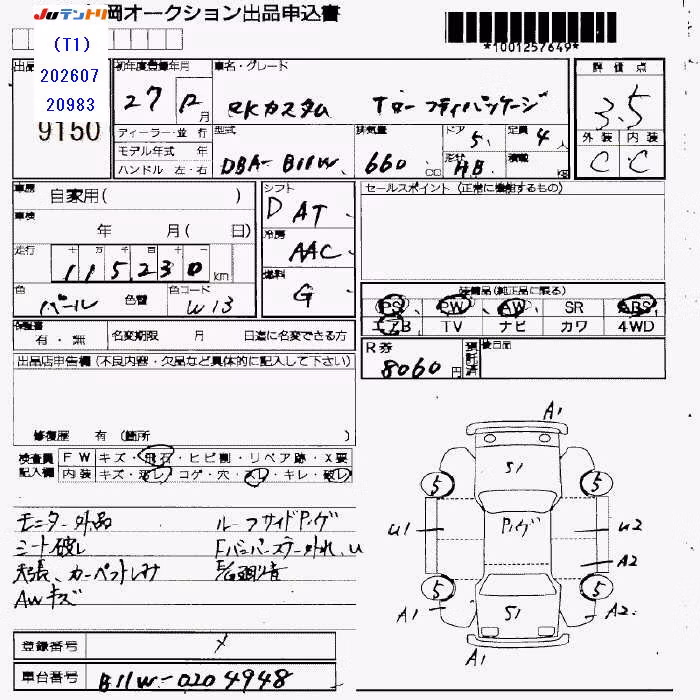 JUテントリ 岡オークション出品申込書
*1001257649*
(T1)
202607
20983
9150
出品
初年度登録年月
27 12月
車名・グレード
ekカスタム Tセーフティパッケージ
評価点
3.5
外装 内装
C C
ディーラー・並行
モデル年式 年
ハンドル 左・右
型式
DBA-B11W
排気量
660 cc
ドア
5
形状
HB
定員
4人
積載
kg
車歴
自家用( )
車検
年 月( 日)
走行
十 万 千 百 十 一
115230 km
色
パール
色替
色コード
W13
シフト
D AT
冷房
AAC
燃料
G
セールスポイント (正常に機能するもの)
装備品(純正品に限る)
PS PW AW SR ABS
エアB TV ナビ カワ 4WD
保証書
有・無
名変期限 月 日迄に名変できる方
R券
8060円
預託済
後日品
出品店申告欄 (不良内容・欠品など具体的に記入して下さい)
修復歴 有 (箇所 )
検査員記入欄
FW キズ・飛石・ヒビ割・リペア跡・X要
内装 キズ・汚レ・コゲ・穴・スレ・キレ・破レ
モニター外品
シート破レ
天張、カーペットシミ
AWキズ
ルーフサイドPハゲ
Fバンパーステー外れ、U
登録番号
メ
車台番号
B11W-0204948
A1
S1
5 5
U1
Pハゲ
U2
A2
5 5
A1
S1
A2
A1